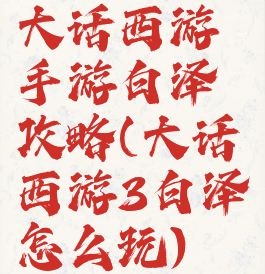 大话西游
手游白泽
攻略(大话
西游3白泽
怎么玩)